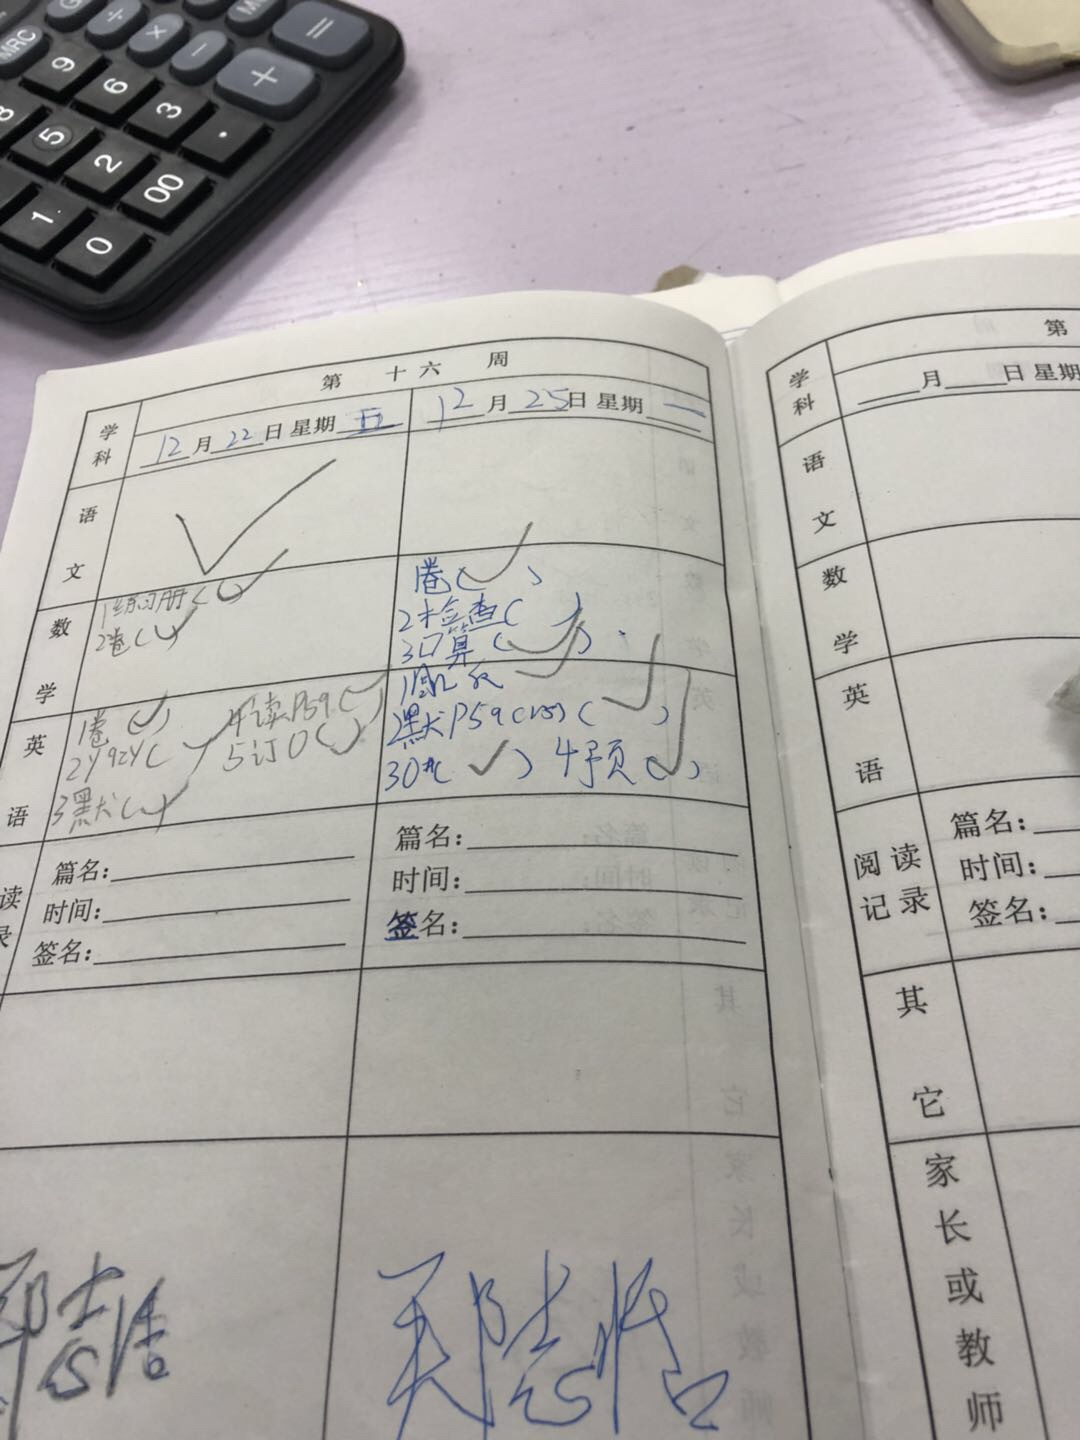 MRC
G
÷
×
−
=
+
9
6
3
.
8
5
2
00
1
0
第 十六 周
学科
12月22日 星期五
12月25日 星期一
语文
数学
1练习册( )
2卷( )
1卷( )
2检查( )
3口算( )
英语
1卷( )
3默( )
4读P59( )
5订( )
2默P59( )
4预( )
篇名:
时间:
签名:
篇名:
时间:
签名:
读
录
郑志
第
学科
月 日 星期
语文
数学
英语
阅读记录
篇名:
时间:
签名:
其它
家长或教师